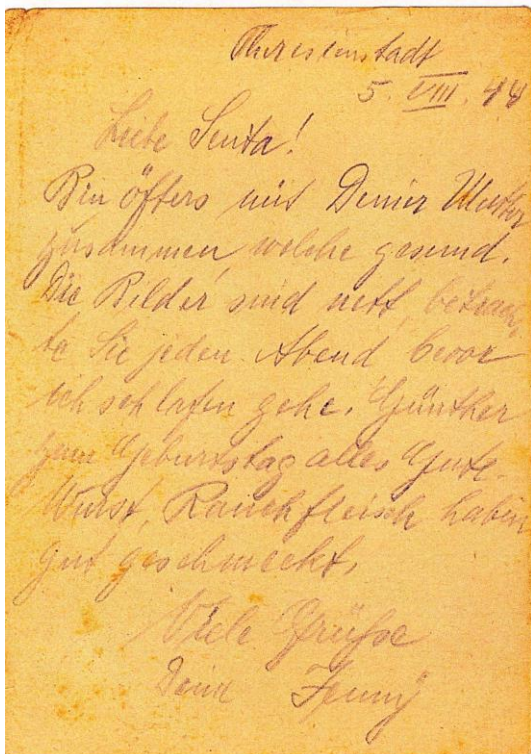 Theresienstadt
5. VIII. 44
Liebe Senta!
Bin öfters mit Deiner Mutter
zusammen, welche gesund.
Die Bilder sind nett, betrach-
te Sie jeden Abend bevor
ich schlafen gehe. Günther
zum Geburtstag alles Gute.
Wurst, Rauchfleisch haben
gut geschmeckt.
Viele Grüße
Deine Jenny